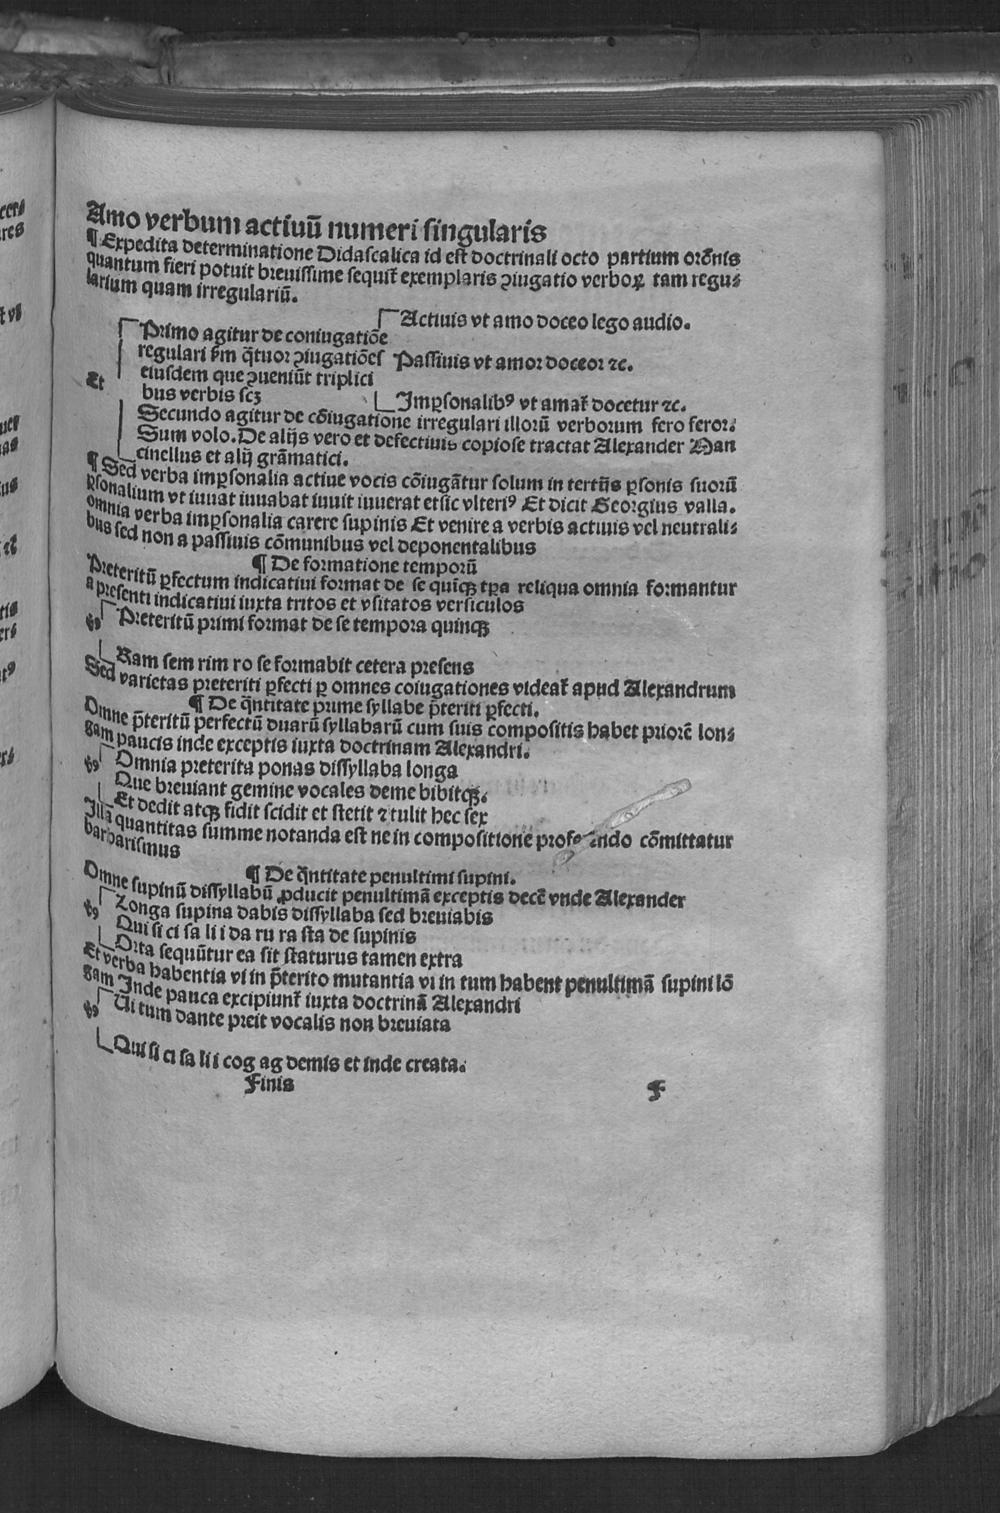 Amo verbum actiuū numeri singularis
¶ Expedita determinatione Didascalica id est doctrinali octo partium orōnis
quantum fieri potuit breuissime sequit᷑ exemplaris ꝯiugatio verboꝝ tam regu⸗
larium quam irregulariū.
Actiuis vt amo doceo lego audio.
Primo agitur de coniugatiōe
regulari ẜm q̄tuor ꝯiugatiōes Passiuis vt amor doceor ⁊c.
Et eiusdem que ꝯueniūt triplici
bus verbis scꝫ Imꝑsonalibꝰ vt amat᷑ docetur ⁊c.
Secundo agitur de cōiugatione irregulari illorū verborum fero feror:
Sum volo. De alijs vero et defectiuis copiose tractat Alexander Man
cinellus et alij grāmatici.
¶ Sed verba imꝑsonalia actiue vocis cōiugātur solum in tertijs ꝑsonis suorū
ꝑsonalium vt iuuat iuuabat iuuit iuuerat etsic vlteriꝰ Et dicit Georgius valla.
omnia verba imꝑsonalia carere supinis Et venire a verbis actiuis vel neutrali⸗
bus sed non a passiuis cōmunibus vel deponentalibus
¶ De formatione temporū
Preteritū ꝑfectum indicatiui format de se quīqꝫ tꝑa reliqua omnia formantur
a presenti indicatiui iuxta tritos et vsitatos versiculos
Preteritū primi format de se tempora quinqꝫ
Ram sem rim ro se formabit cetera presens
Sed varietas preteriti ꝑfecti ꝑ omnes coiugationes videat᷑ apud Alexandrum
¶ De q̄ntitate prime syllabe p̄teriti ꝑfecti.
Omne p̄teritū perfectū duarū syllabarū cum suis compositis habet priorē lon⸗
gam paucis inde exceptis iuxta doctrinam Alexandri.
Omnia preterita ponas dissyllaba longa
Que breuiant gemine vocales deme bibitqꝫ.
Et dedit atqꝫ fidit scidit et stetit ⁊ tulit hec sex
Illā quantitas summe notanda est ne in compositione profe ndo cōmittatur
barbarismus
¶ De q̄ntitate penultimi supini.
Omne supinū dissyllabū ꝓducit penultimā exceptis decē vnde Alexander
Longa supina dabis dissyllaba sed breuiabis
Qui si ci sa li i da ru ra sta de supinis
Orta sequūtur ea sit staturus tamen extra
Et verba habentia vi in p̄terito mutantia vi in tum habent penultimā supini lō
gam Inde pauca excipiunt᷑ iuxta doctrinā Alexandri
Ui tum dante preit vocalis non breuiata
Qui si ci sa li i cog ag demis et inde creata.
Finis F